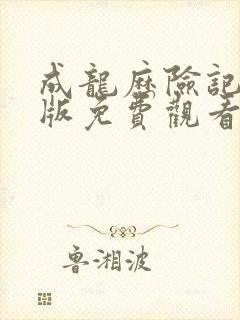 成龍歷險記
版免費觀看
魯湘波